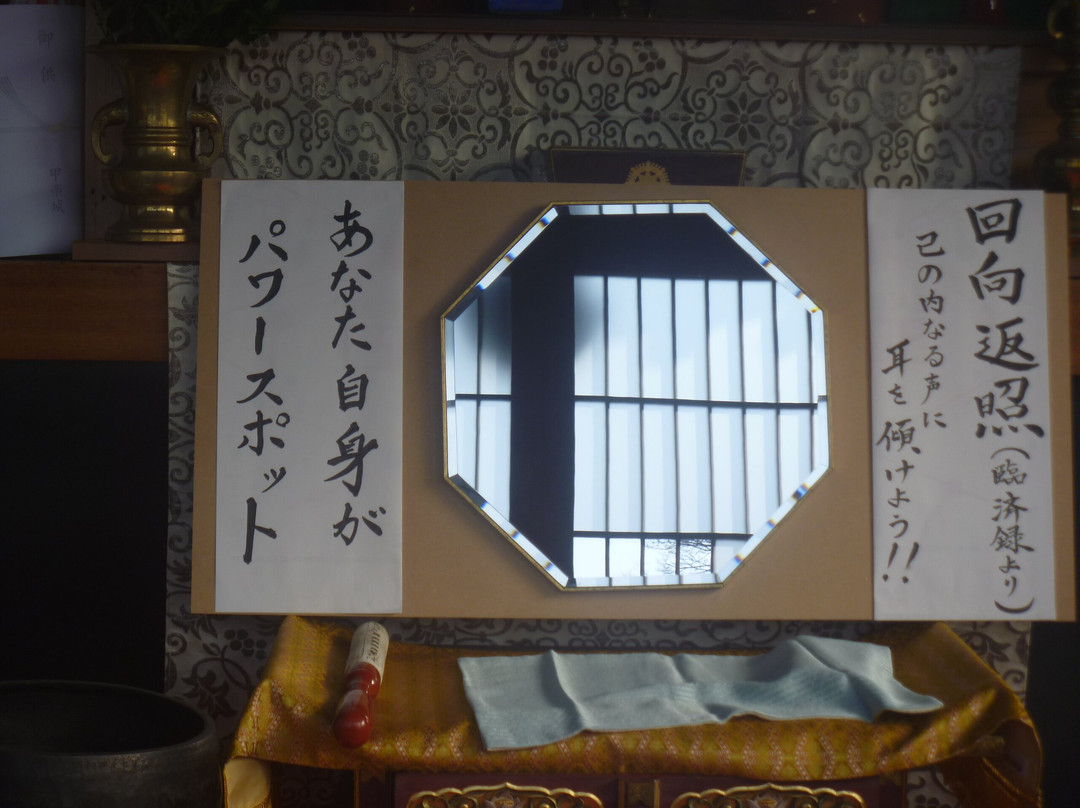 回向返照(臨済録より)
己の内なる声に
耳を傾けよう!!
あなた自身が
パワースポット
御供